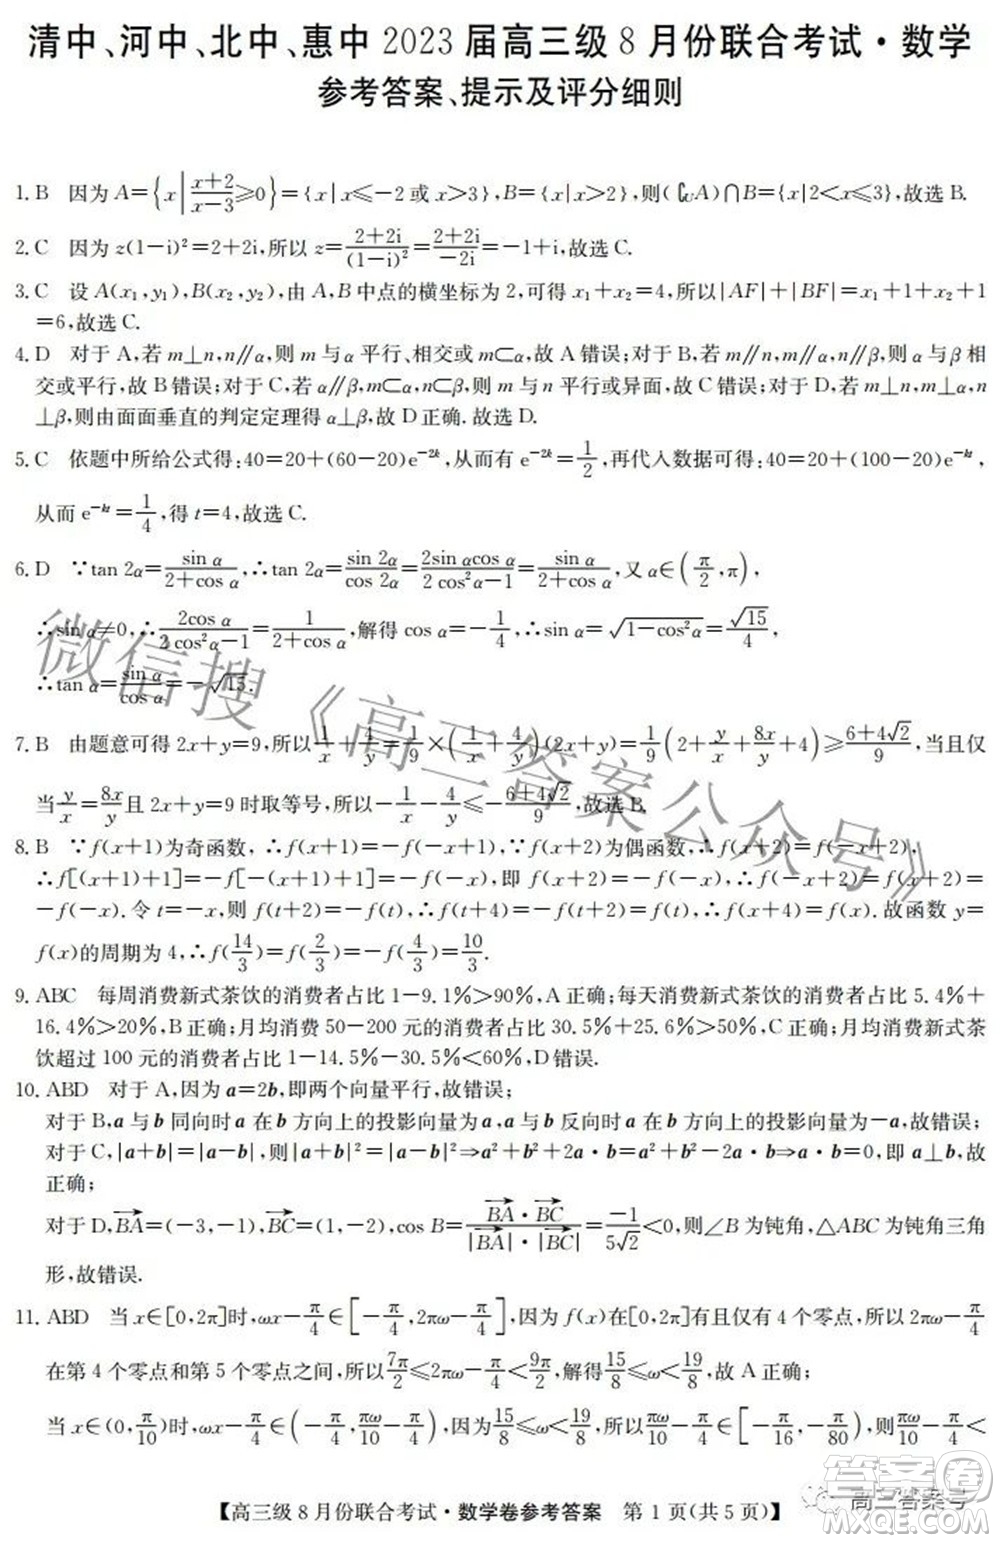 清中、河中、北中、惠中 2023 届高三级 8 月份联合考试·数学
参考答案、提示及评分细则
1. B 因为 A={x|(x+2)/(x−3)≥0}={x|x≤−2 或 x>3},B={x|x>2},则(∁ᵤA)∩B={x|2<x≤3},故选 B.
2. C 因为 z(1−i)²=2+2i,所以 z=(2+2i)/(1−i)²=(2+2i)/(−2i)=−1+i,故选 C.
3. C 设 A(x₁,y₁),B(x₂,y₂),由 A,B 中点的横坐标为 2,可得 x₁+x₂=4,所以|AF|+|BF|=x₁+1+x₂+1
=6,故选 C.
4. D 对于 A,若 m⊥n,n∥α,则 m 与 α 平行、相交或 m⊂α,故 A 错误;对于 B,若 m∥n,m∥α,n∥β,则 α 与 β 相
交或平行,故 B 错误;对于 C,若 α∥β,m⊂α,n⊂β,则 m 与 n 平行或异面,故 C 错误;对于 D,若 m⊂α,m
⊥β,则由面面垂直的判定定理得 α⊥β,故 D 正确.故选 D.
5. C 依题中所给公式得:40=20+(60−20)e^(−2k),从而有 e^(−2k)=1/2,再代入数据可得:40=20+(100−20)e^(−kt),
从而 e^(−kt)=1/4,得 t=4,故选 C.
6. D ∵tan 2α=sin α/(2+cos α),∴tan 2α=sin 2α/cos 2α=2sin αcos α/(2cos²α−1)=sin α/(2+cos α),又 α∈(π/2,π),
∴sin α≠0,∴2cos α/(2cos²α−1)=1/(2+cos α),解得 cos α=−1/4,∴sin α=√(1−cos²α)=√15/4,
∴tan α=sin α/cos α=−√15.
7. B 由题意可得 2x+y=9,所以 1/x+4/y=1/9×(1/x+4/y)(2x+y)=1/9(2+y/x+8x/y+4)≥(6+4√2)/9,当且仅
当 y/x=8x/y 且 2x+y=9 时取等号,所以−1/x−4/y≤−(6+4√2)/9,故选 B.
8. B ∵f(x+1)为奇函数,∴f(x+1)=−f(−x+1),∵f(x+2)为偶函数,∴f(x+2)=f(−x+2).
∴f[(x+1)+1]=−f[−(x+1)+1]=−f(−x),即 f(x+2)=−f(−x),∴f(−x+2)=f(x+2)=
−f(−x).令 t=−x,则 f(t+2)=−f(t),∴f(t+4)=−f(t+2)=f(t),∴f(x+4)=f(x).故函数 y=
f(x)的周期为 4,∴f(14/3)=f(2/3)=−f(4/3)=10/3.
9. ABC 每周消费新式茶饮的消费者占比 1−9.1%>90%,A 正确;每天消费新式茶饮的消费者占比 5.4%+
16.4%>20%,B 正确;月均消费 50−200 元的消费者占比 30.5%+25.6%>50%,C 正确;月均消费新式茶
饮超过 100 元的消费者占比 1−14.5%−30.5%<60%,D 错误.
10. ABD 对于 A,因为 a=2b,即两个向量平行,故错误;
对于 B,a 与 b 同向时 a 在 b 方向上的投影向量为 a,a 与 b 反向时 a 在 b 方向上的投影向量为−a,故错误;
对于 C,|a+b|=|a−b|,则|a+b|²=|a−b|²⇒a²+b²+2a·b=a²+b²−2a·b⇒a·b=0,即 a⊥b,故
正确;
对于 D,BA=(−3,−1),BC=(1,−2),cos B=BA·BC/(|BA|·|BC|)=−1/(5√2)<0,则∠B 为钝角,△ABC 为钝角三角
形,故错误.
11. ABD 当 x∈[0,2π]时,ωx−π/4∈[−π/4,2πω−π/4],因为 f(x)在[0,2π]有且仅有 4 个零点,所以 2πω−π/4
在第 4 个零点和第 5 个零点之间,所以 7π/2≤2πω−π/4<9π/2,解得 15/8≤ω<19/8,故 A 正确;
当 x∈(0,π/10)时,ωx−π/4∈(−π/4,πω/10−π/4),因为 15/8≤ω<19/8,所以 πω/10−π/4∈[−π/16,−π/80),则 πω/10−π/4<
【高三级 8 月份联合考试·数学卷参考答案 第 1 页(共 5 页)】
微信搜《高三答案公众号》
高三答案号
答案卷